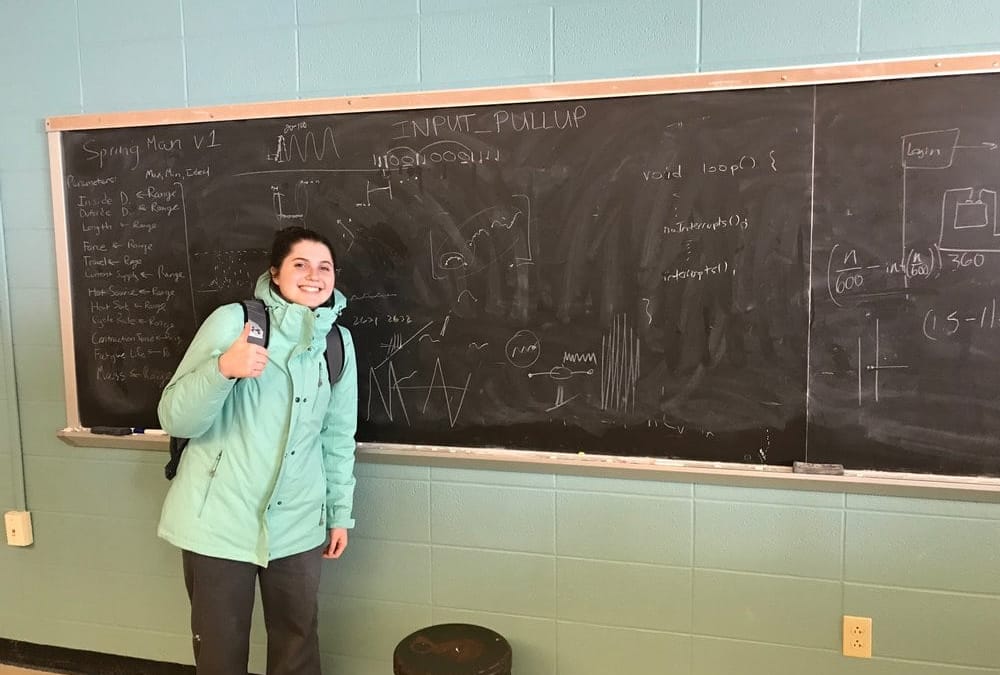 Spring Man v1
Parameters:
Max, Min, Ideal
Inside D. ← Range
Outside D. ← Range
Length ← Range
Force ← Range
Travel ← Range
Current Supply ← Range
Heat Source ← Range
Heat Sink ← Range
Cycle Rate ← Range
Contraction Force
Fatigue Life
Mass ← Range
80-100
INPUT_PULLUP
2631 2632
void loop() {
noInterrupts();
interrupts();
}
Login
360
(n/600 - int(n/600))
(1.5-1